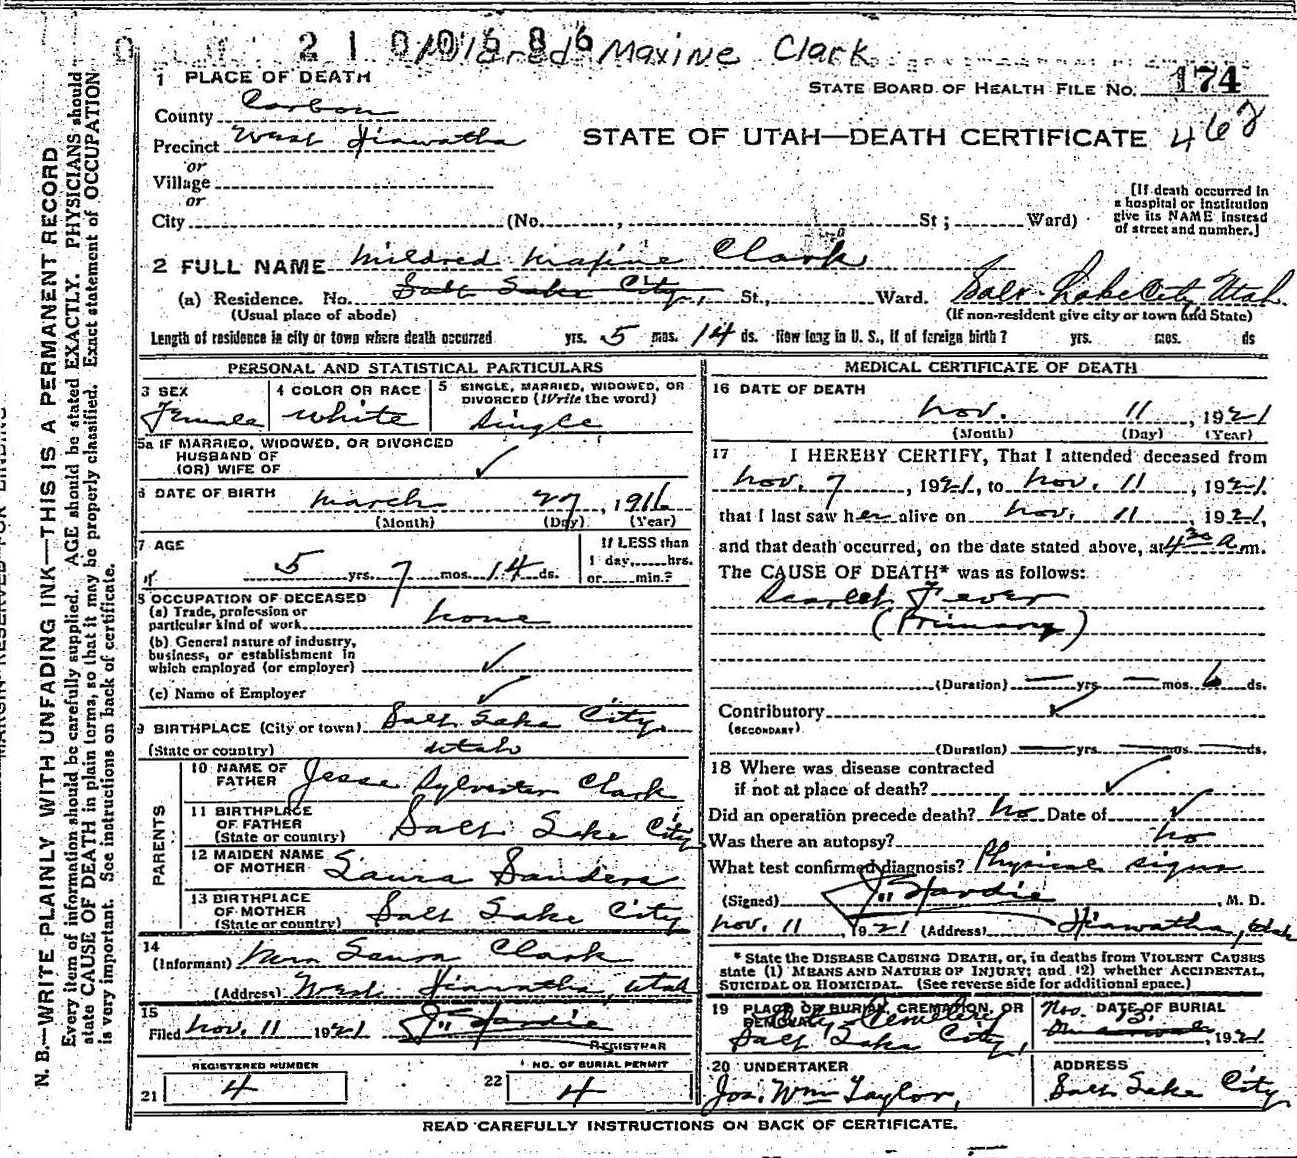 2 1 0 0 1 6 8 6 Mildred Maxine Clark
1 PLACE OF DEATH
STATE BOARD OF HEALTH FILE NO. 174
County Carbon
Precinct West Hiawatha
STATE OF UTAH—DEATH CERTIFICATE 462
or
Village
or
City (No. , St ; Ward)
[If death occurred in
a hospital or institution
give its NAME instead
of street and number.]
2 FULL NAME Mildred Maxine Clark
(a) Residence. No. Salt Lake City, St., Ward. Salt Lake City, Utah.
(Usual place of abode) (If non-resident give city or town and State)
Length of residence in city or town where death occurred yrs. 5 mos. 14 ds. How long in U. S., if of foreign birth? yrs. mos. ds
PERSONAL AND STATISTICAL PARTICULARS
3 SEX Female
4 COLOR OR RACE White
5 SINGLE, MARRIED, WIDOWED, OR
DIVORCED (Write the word)
Single
5a IF MARRIED, WIDOWED, OR DIVORCED
HUSBAND OF
(OR) WIFE OF ✓
6 DATE OF BIRTH March 27, 1916
(Month) (Day) (Year)
7 AGE
5 yrs. 7 mos. 14 ds.
If LESS than
1 day,......hrs.
or......min.?
8 OCCUPATION OF DECEASED
(a) Trade, profession or
particular kind of work none
(b) General nature of industry,
business, or establishment in
which employed (or employer) ✓
(c) Name of Employer ✓
9 BIRTHPLACE (City or town) Salt Lake City,
(State or country) Utah
PARENTS
10 NAME OF
FATHER Jesse Sylvester Clark
11 BIRTHPLACE
OF FATHER
(State or country) Salt Lake City
12 MAIDEN NAME
OF MOTHER Laura Sanders
13 BIRTHPLACE
OF MOTHER
(State or country) Salt Lake City
14
(Informant) Mrs Laura Clark
(Address) West Hiawatha, Utah
15
Filed Nov. 11 1921 J. Hardie
REGISTRAR
REGISTERED NUMBER
21 4
NO. OF BURIAL PERMIT
22 4
MEDICAL CERTIFICATE OF DEATH
16 DATE OF DEATH
Nov. 11, 1921
(Month) (Day) (Year)
17 I HEREBY CERTIFY, That I attended deceased from
Nov. 7, 1921, to Nov. 11, 1921.
that I last saw her alive on Nov. 11 1921,
and that death occurred, on the date stated above, at 4 30 a m.
The CAUSE OF DEATH* was as follows:
Scarlet Fever
(Primary)
(Duration) — yrs. — mos. 6 ds.
Contributory ✓
(SECONDARY)
(Duration) — yrs. — mos. — ds.
18 Where was disease contracted
if not at place of death? ✓
Did an operation precede death? no Date of ✓
Was there an autopsy? no
What test confirmed diagnosis? Physical signs
(Signed) J. Hardie, M. D.
Nov. 11, 1921 (Address) Hiawatha, Utah
* State the DISEASE CAUSING DEATH, or, in deaths from VIOLENT CAUSES
state (1) MEANS AND NATURE OF INJURY; and (2) whether ACCIDENTAL,
SUICIDAL OR HOMICIDAL. (See reverse side for additional space.)
19 PLACE OF BURIAL, CREMATION, OR
REMOVAL City Cemetery
Salt Lake City,
DATE OF BURIAL
Nov. 13, 1921
20 UNDERTAKER
Jos. Wm Taylor,
ADDRESS
Salt Lake City
READ CAREFULLY INSTRUCTIONS ON BACK OF CERTIFICATE.
N. B.—WRITE PLAINLY WITH UNFADING INK—THIS IS A PERMANENT RECORD
Every item of information should be carefully supplied. AGE should be stated EXACTLY. PHYSICIANS should
state CAUSE OF DEATH in plain terms, so that it may be properly classified. Exact statement of OCCUPATION
is very important. See instructions on back of certificate.
MARGIN RESERVED FOR BINDING